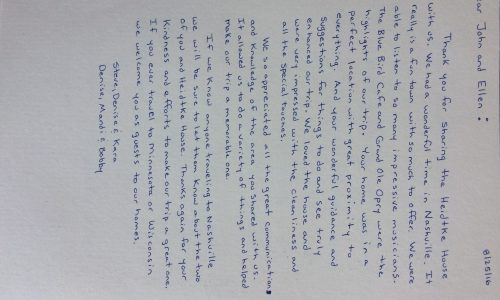 8/25/16
ear John and Ellen:
Thank you for sharing the Heidtke House
with us. We had a wonderful time in Nashville. It
really is a fun town with so much to offer. We were
able to listen to so many impressive musicians.
The Blue Bird Cafe and Grand Ole Opry were the
highlights of our trip. Your home was in a
perfect location with great proximity to
everything. And your wonderful guidance and
suggestions for things to do and see truly
enhanced our trip. We loved the house and
were very impressed with the cleanliness and
all the special touches.
We so appreciated all the great communication,
and knowledge of the area you shared with us.
It allowed us to do a variety of things and helped
make our trip a memorable one.
If we know anyone traveling to Nashville
we will be sure to let them know about the two
of you and Heidtke House. Thanks again for your
kindness and efforts to make our trip a great one.
If you ever travel to Minnesota or Wisconsin
we welcome you as guests to our homes.
Steve, Denise & Kara
Denise, Mandi & Bobby